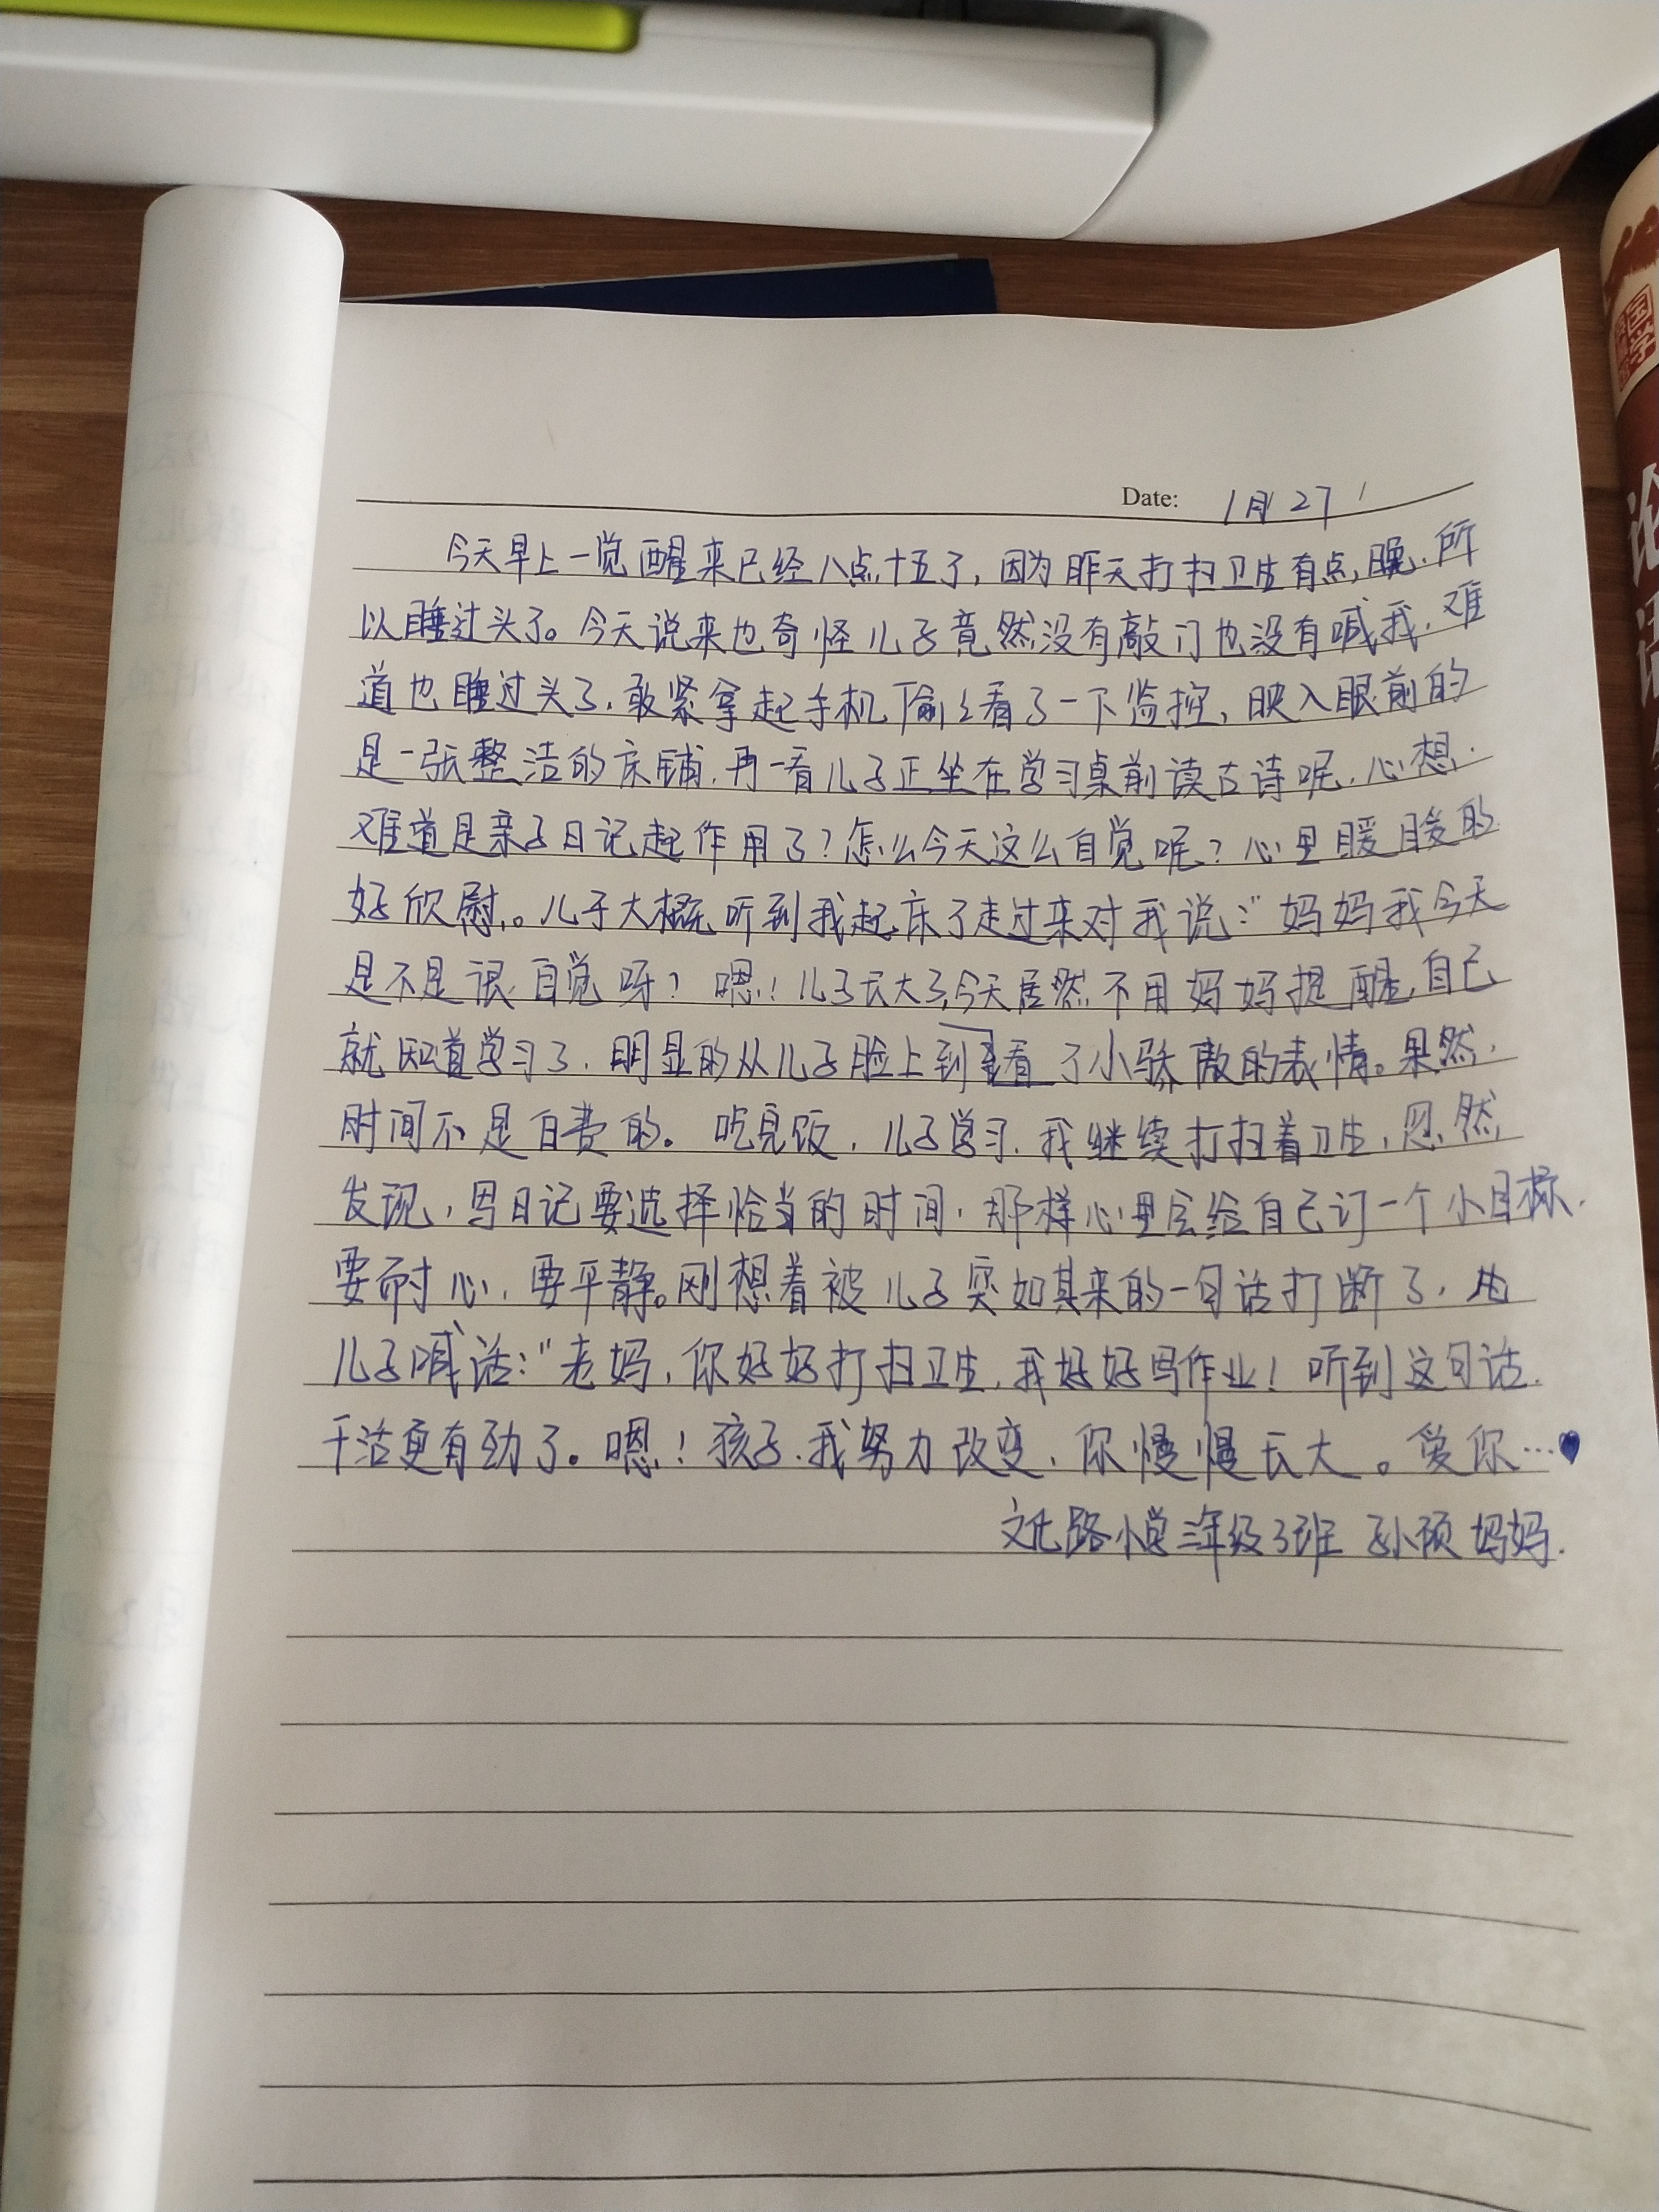 Date: 1月27
今天早上一觉醒来已经八点十五了，因为昨天打扫卫生有点晚.所
以睡过头了。今天说来也奇怪儿子竟然没有敲门也没有喊我.难
道也睡过头了.敢紧拿起手机偷々看了一下监控，映入眼前的
是一张整洁的床铺.再一看儿子正坐在学习桌前读古诗呢.心想.
难道是亲子日记起作用了?怎么今天这么自觉呢?心里暖暖的
好欣慰。儿子大概听到我起床了走过来对我说:"妈妈我今天
是不是很自觉呀? 嗯!儿子长大了,今天居然不用妈妈提醒,自己
就知道学习了.明显的从儿子脸上到看了小骄傲的表情。果然.
时间不是白费的。吃完饭.儿子学习.我继续打扫着卫生,忽然
发现,写日记要选择恰当的时间.那样心里会给自己订一个小目标.
要耐心.要平静。刚想着被儿子突如其来的一句话打断了.
儿子喊话:"老妈,你好好打扫卫生.我好好写作业! 听到这句话.
干活更有劲了。嗯!孩子.我努力改变.你慢慢长大。爱你…
文化路小学三年级3班 孙硕妈妈.
国学
论语